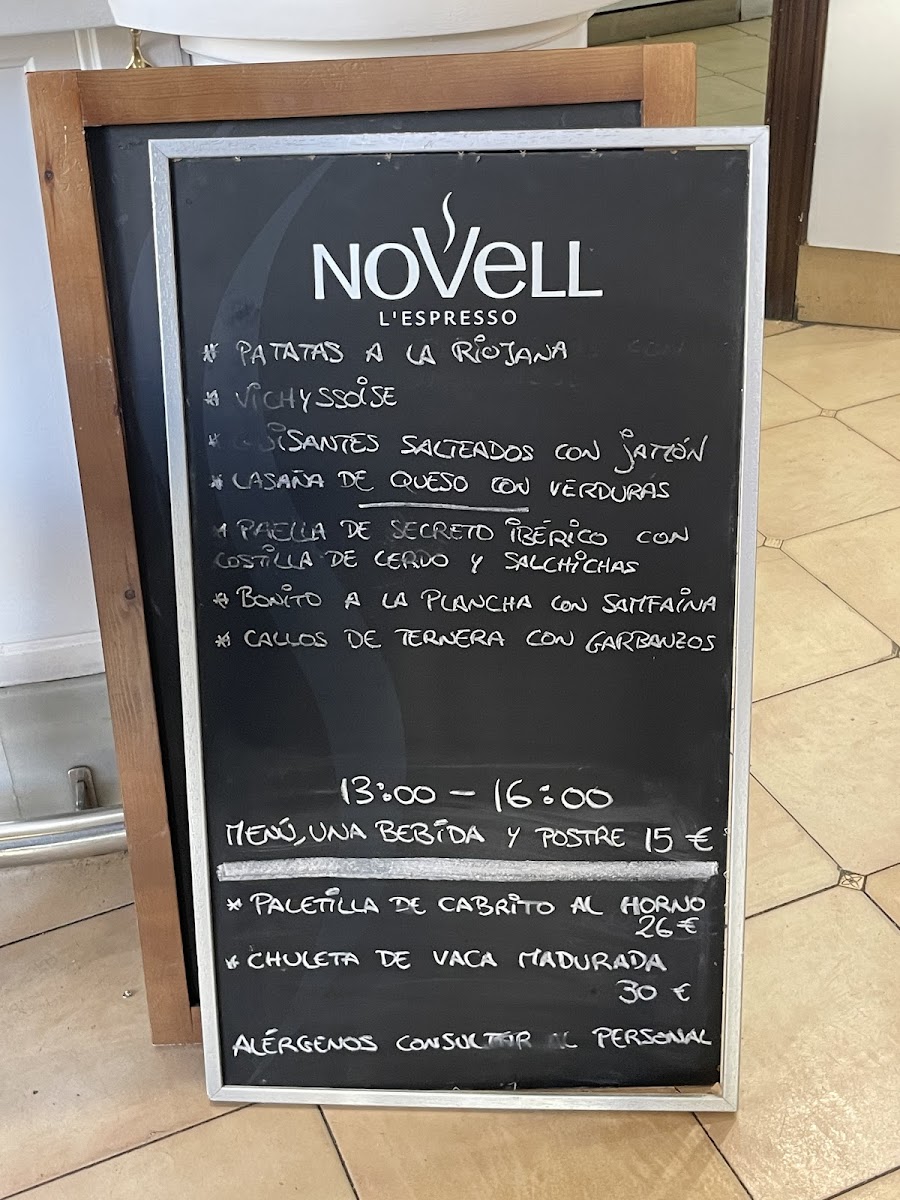 NOVELL
L'ESPRESSO
* PATATAS A LA RIOJANA
* VICHYSSOISE
* GUISANTES SALTEADOS CON JAMÓN
* LASAÑA DE QUESO CON VERDURAS
* PAELLA DE SECRETO IBÉRICO CON
COSTILLA DE CERDO Y SALCHICHAS
* BONITO A LA PLANCHA CON SAMFAINA
* CALLOS DE TERNERA CON GARBANZOS
13:00 - 16:00
MENÚ, UNA BEBIDA Y POSTRE 15 €
* PALETILLA DE CABRITO AL HORNO
26 €
* CHULETA DE VACA MADURADA
30 €
ALÉRGENOS CONSULTAR AL PERSONAL